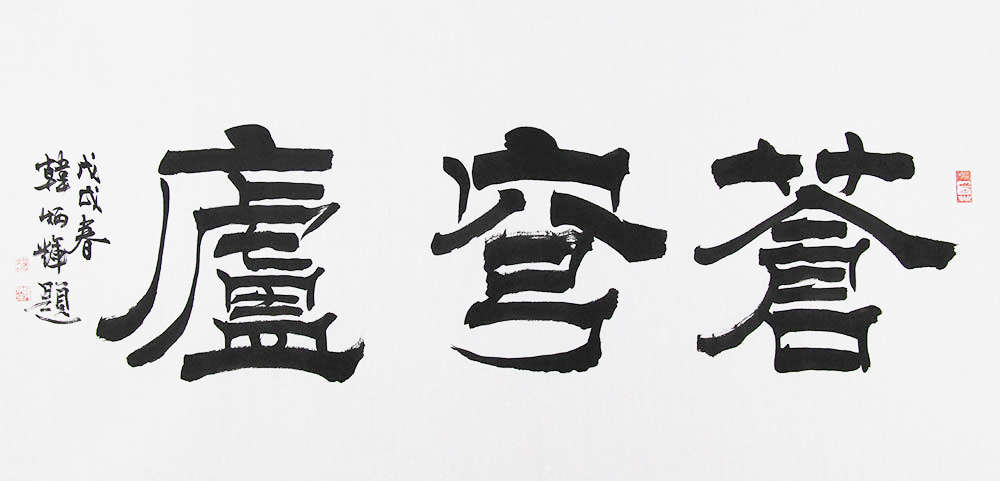 蒼穹廬
戊戌春
韓炳輝題